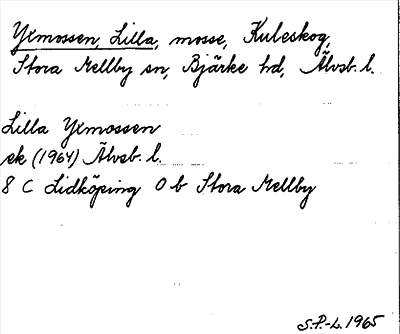 Yxmossen, Lilla, mosse, Kuleskog,
Stora Mellby sn, Bjärke hd, Älvsb. l.
Lilla Yxmossen
ek (1964) Älvsb. l.
8 C Lidköping 0 b Stora Mellby
S.P.-L. 1965